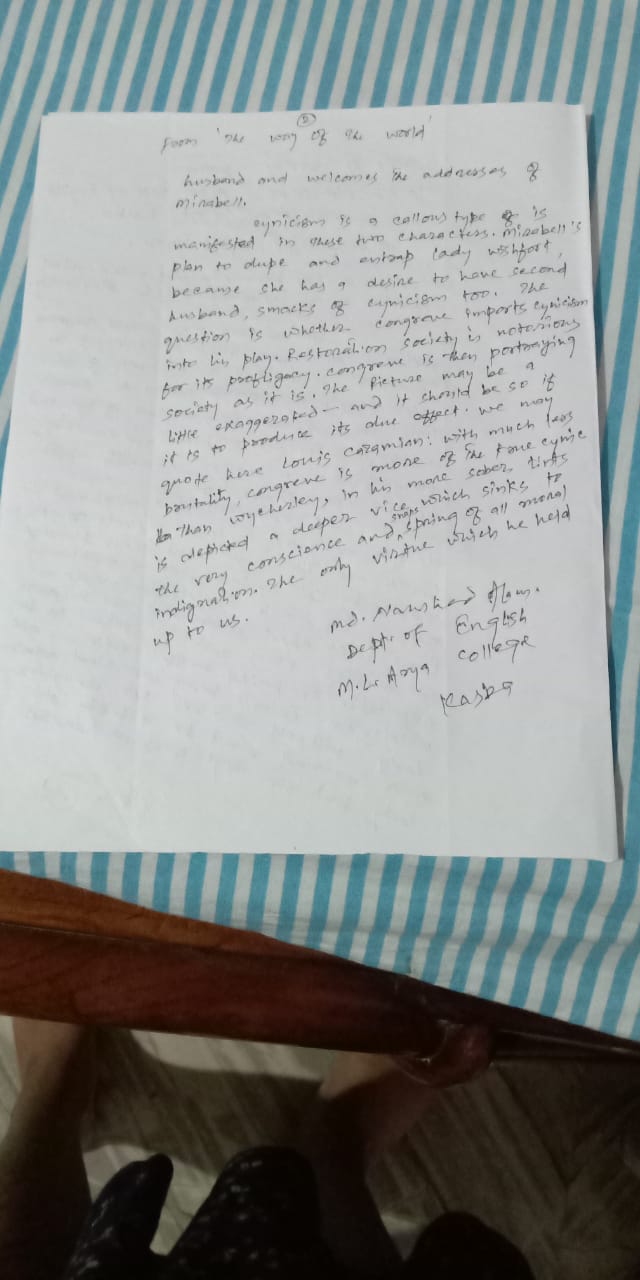 ②
From 'The way of the world'
husband and welcomes the addresses of
Mirabell.
cynicism is a callous type of is
manifested in these two characters. Mirabell's
plan to dupe and entrap lady wishfort,
because she has a desire to have second
husband, smacks of cynicism too. The
question is whether congreve imports cynicism
into his play. Restoration society is notorious
for its profligacy. congreve is then portraying
society as it is. The picture may be a
little exaggerated - and it should be so if
it is to produce its due effect. we may
quote here Louis cazamian: with much less
brutality, congreve is more of the true cynic
than wycherley, in his more sober tints
is depicted a deeper vice, which sinks to
the very conscience and snaps spring of all moral
indignation. The only virtue which he held
up to us.
Md. Alam.
Dept. of English
M.L. Arya College
Kasba